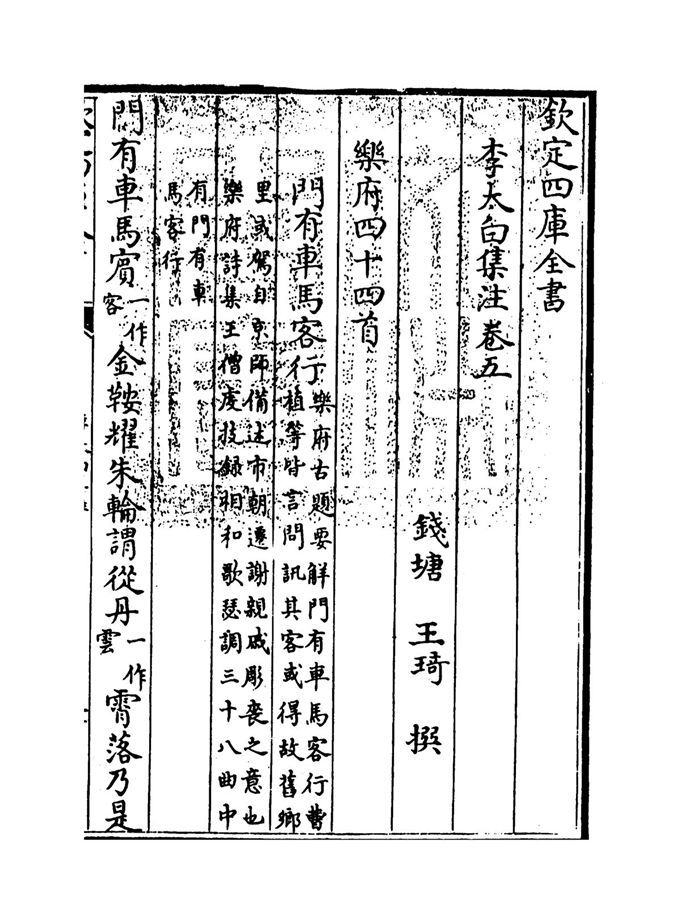 欽定四庫全書
李太白集注卷五
錢塘 王琦 撰
樂府四十四首
門有車馬客行樂府古題要解門有車馬客行曹
植等皆言問訊其客或得故舊鄉
里或駕自京師備述市朝遷謝親戚彫喪之意也
樂府詩集王僧虔技錄相和歌瑟調三十八曲中
有門有車
馬客行
門有車馬賔一作客金鞍耀朱輪謂從丹一作雲霄落乃是